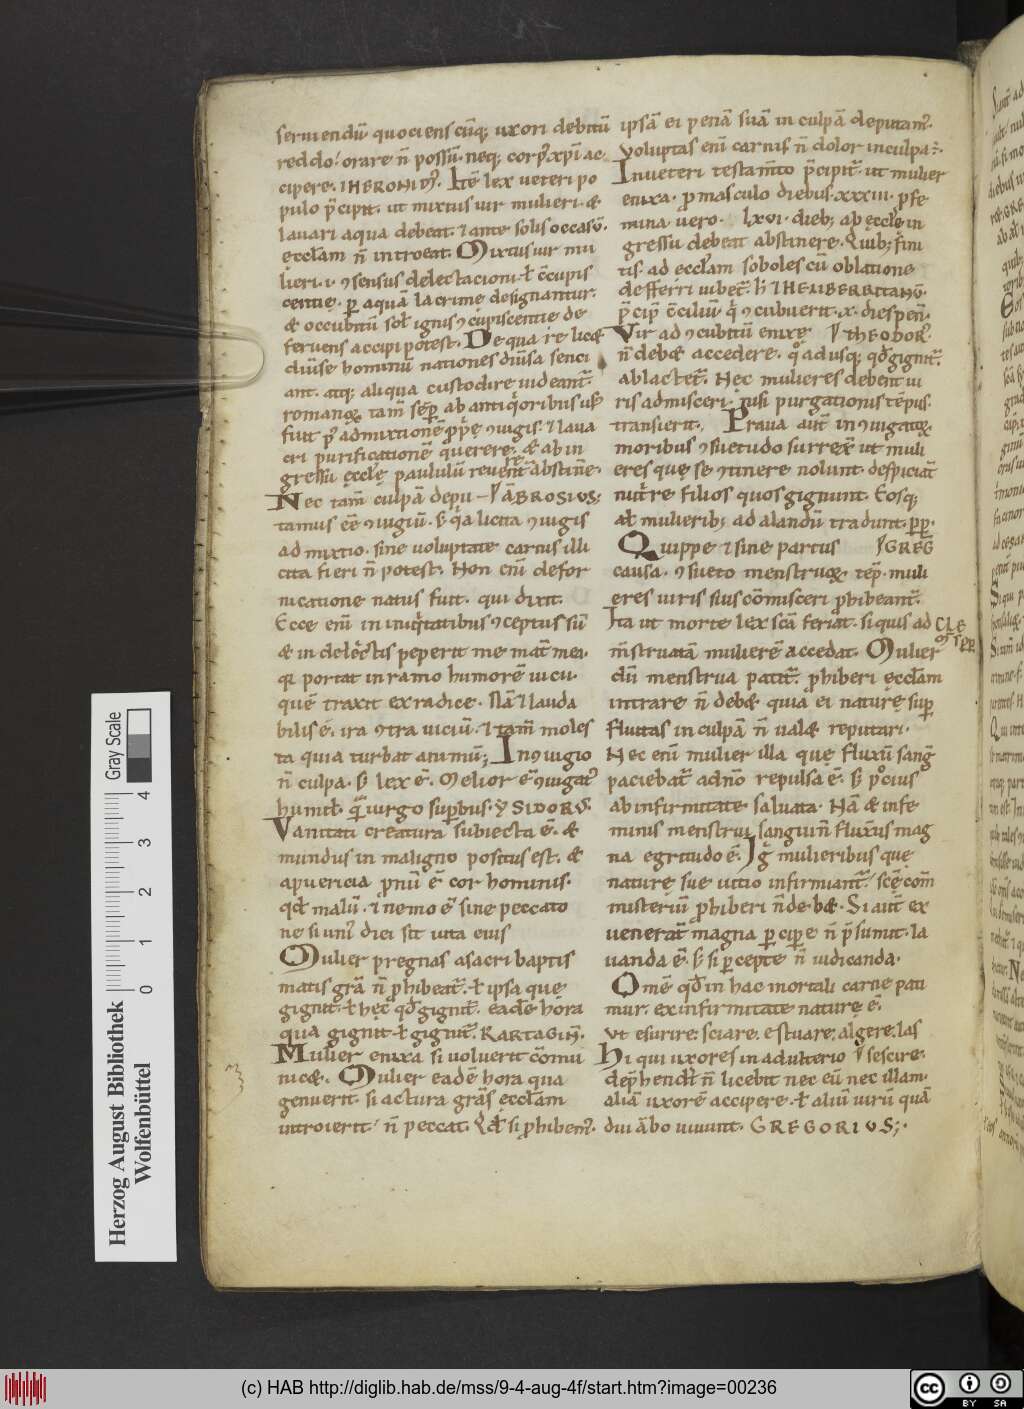 seruiendū quociens cūq; uxori debitū
reddo. orare ñ possū. neq; corp' xpi ac
cipere. IHERONIM'. Itē lex ueteri po
pulo p̄cipit. ut mixtus uir mulieri. &
lauari aqua debeat. & ante solis occasū.
ęccłam ñ introeat. Mixtus uir mu
lieri. i. ɔsensus delectacioni. ł c̄cupis
centię. ꝑ aquā lacrime designantur.
& occubitū soł ignis ɔcupiscentie de
feruens accipi potest. De qua re lic&
diūse hominū nationes diūsa senci
ant. atq; aliqua custodire uideant̄.
romanoꝝ tam̄ sēꝑ ab antiq̊oribus us'
fuit p' admixtionē ꝓpę ɔiugis. & laua
cri purificationē querere. & ab in
gressu ęcclę paululū reuerēt abstinēre.
Nec tam̄ culpā depu AMBROSIUS;
tamus eē ɔiugiū. s; q̄a licita ɔiugis
admixtio. sine uoluptate carnis illi
cita fieri ñ potest. Non enī de for
nicatione natus fuit. qui dixit.
Ecce enī in iniq̄tatibus ɔceptus sū
& in delictis peperit me mat̄ mea.
qꝛ portat in ramo humorē uicii.
quē traxit ex radice. Nā & lauda
bilis ē. ira ɔtra uiciū. & tam̄ moles
ta quia turbat animū; In ɔiugio
ñ culpa. s; lex ē. Melior ē ɔiugat'
humił. q̄ uirgo suꝑbus. YSIDORUS.
Vanitati creatura subiecta ē. &
mundus in maligno positus est. &
a puericia pnū ē cor hominis.
qđ malū. & nemo ē sine peccato
ne si uni' diei sit uita eius
Mulier pregnas a sacri baptis
matis grā ñ ꝓhibeat̄. ł ipsa que
gignit. ł hęc qđ gignit̄. eadē hora
qua gignit ł gignit̄. KARTAGIN̄.
Mulier enixa si uoluerit cōmu
nicā. Mulier eadē hora qua
genuerit. si actura grās ęccłam
introierit ñ peccat. Qđ si ꝓhibem'.
ipsā ei penā suā in culpā deputam'.
Voluptas enī carnis ñ dolor in culpa ē.
In ueteri testam̄to p̄cipit̄. ut mulier
enixa. ꝓ masculo diebus. xxxiii. ꝓ fe
mina uero. lxvi. dieb; ab ęcclę in
gressu debeat abstinere. Quib; fini
tis. ad eccłam soboles cū oblatione
defferri iubet̄. IHELIBERRITANŪ.
p̄cip̄ c̄ciliū q̄ ɔcubuerit. x. dies pen̄.
Vir ad ɔcubitū enixę THEODOR'.
ñ deb& accedere. q̊ adusq; qđ gignit̄.
ablactet̄. Hęc mulieres debent ui
ris admisceri. nisi purgationis tēpus.
transierit. Praua aut̄ in ɔiugatoꝝ
moribus ɔsuetudo surrex̄ ut muli
eres quę se ɔtinere nolunt. despiciāt
nut̄re filios quos gignunt. Eosq;
ał mulierib; ad alandū tradunt. ꝑꝑ.
Quippe & sine partus GREG
causa. ɔsueto menstruoꝝ tēp. muli
eres uiris suis cōmisceri ꝓhibeant̄.
Ita ut morte lex scā feriat. si quis ad
CLE
m̄struatā mulierē accedat. Mulier
dū menstrua patit̄. ꝓhiberi ęccłam
intrare ñ deb& quia ei naturę suꝑ
fluitas in culpā ñ ual& reputari.
Nec enī mulier illa quę fluxū sanḡ
paciebat̄ ad dn̄o repulsa ē. s; pocius
ab infirmitate saluata. Nā & infe
minis menstrui sanguin̄ fluxus mag
na egritudo ē. Ig̊ mulieribus quę
naturę suę uitio infirmant̄. scē com̄
misteriū ꝓhiberi ñ deb&. Si aut̄ ex
uenerāt magna ꝑcipe ñ p̄sumit. la
uanda ē. s; si ꝑcepte ñ iudicanda.
Omē qđ in hac mortali carne pati
mur. ex infirmitate naturę ē.
Ut esurire. sciare. estuare. algere. las
Hi qui uxores in adulterio sescire.
dep̄hendt̄ ñ licebit nec eū nec illam.
aliā uxorē accipere. ł aliū uirū quā
diu ābo uiuunt. GREGORIUS;.
Herzog August Bibliothek
Wolfenbüttel
0 1 2 3 4
Gray Scale
(c) HAB http://diglib.hab.de/mss/9-4-aug-4f/start.htm?image=00236
CC BY SA